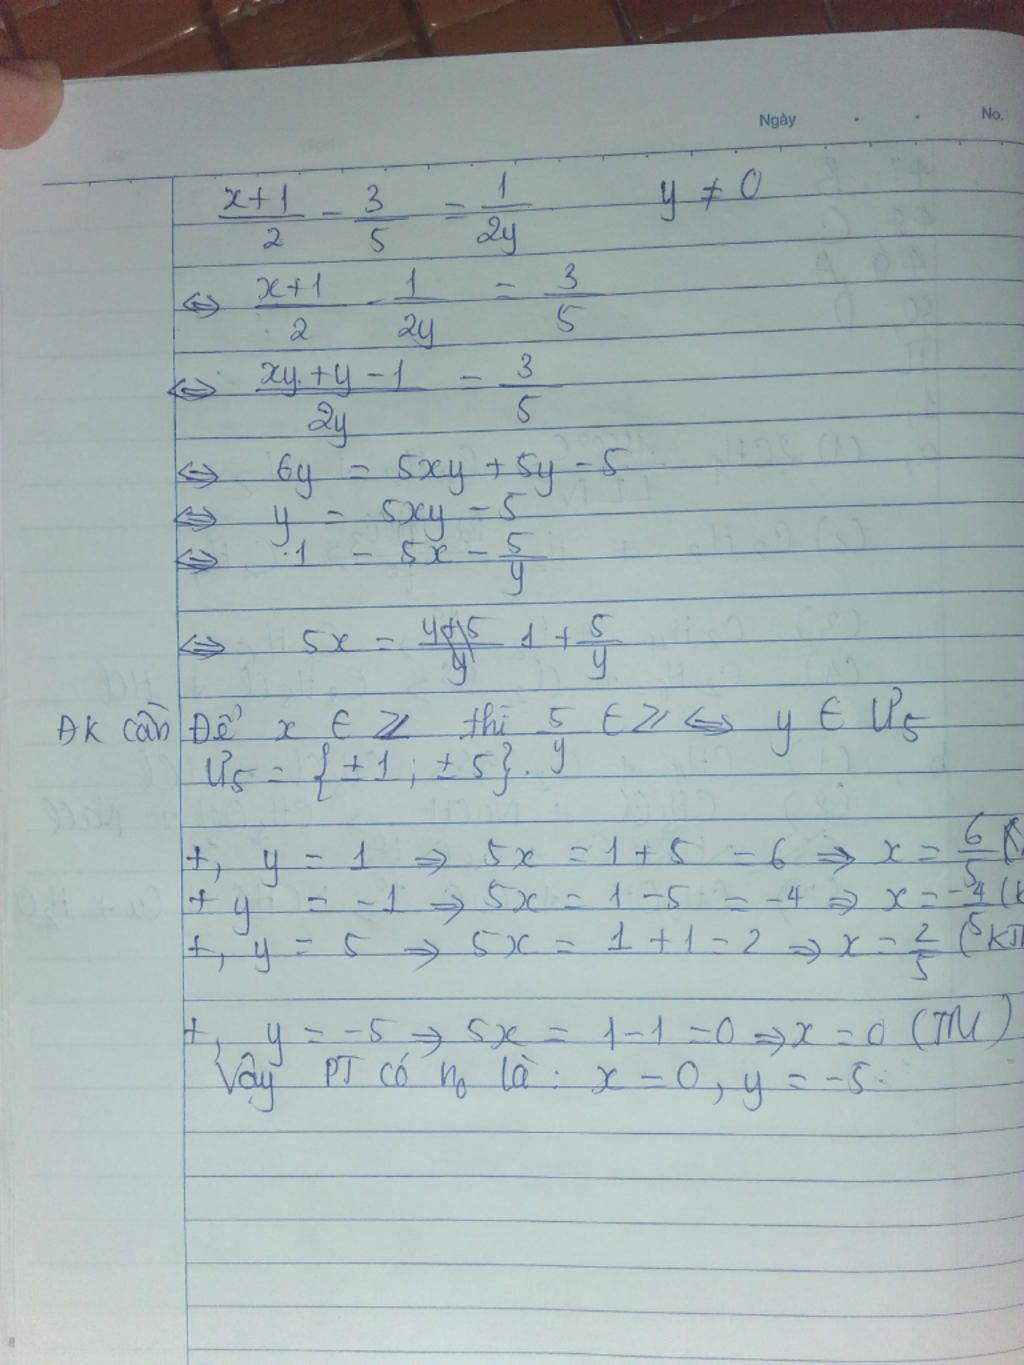 Ngày . . No.
x+1/2 - 3/5 = 1/2y y ≠ 0
⇔ x+1/2 - 1/2y = 3/5
⇔ xy+y-1/2y = 3/5
⇔ 6y = 5xy + 5y - 5
⇔ y = 5xy - 5
⇔ 1 = 5x - 5/y
⇔ 5x = 1 + 5/y
ĐK cần Để x ∈ Z thì 5/y ∈ Z ⇔ y ∈ Ư5
Ư5 = {±1; ±5}.
+, y = 1 ⇒ 5x = 1+5 = 6 ⇒ x = 6/5 (
+ y = -1 ⇒ 5x = 1-5 = -4 ⇒ x = -4/5 (K
+, y = 5 ⇒ 5x = 1+1 = 2 ⇒ x = 2/5 (KT
+, y = -5 ⇒ 5x = 1-1 = 0 ⇒ x = 0 (TM)
Vậy PT có n0 là: x = 0, y = -5.